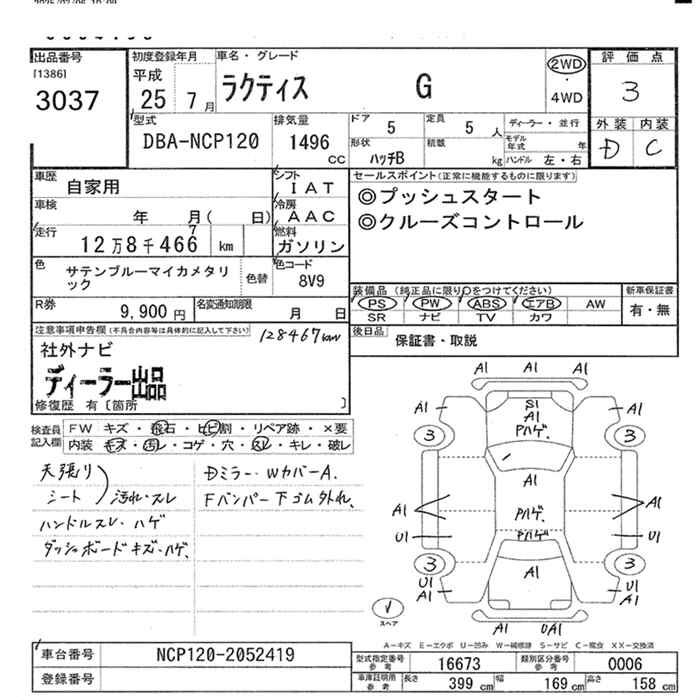 出品番号
[1386]
3037
初度登録年月
平成
25年 7月
車名・グレード
ラクティス G
2WD
・
4WD
評価点
3
外装 内装
D C
型式
DBA-NCP120
排気量
1496
CC
ドア 5
定員 5 人
形状 ハッチB
積載 kg
ディーラー・並行
モデル年式 年
ハンドル 左・右
車歴 自家用
シフト IAT
車検 年 月( 日)
冷房 AAC
走行 12万8千466 km
7
燃料 ガソリン
色 サテンブルーマイカメタリック
色替
色コード 8V9
R券 9,900円
名変通知期限 月 日
セールスポイント(正常に機能するものに限ります)
◎プッシュスタート
◎クルーズコントロール
装備品(純正品に限り○をつけてください)
PS PW ABS エアB AW
SR ナビ TV カワ
新車保証書
有・無
後日品 保証書・取説
注意事項申告欄(不具合内容等は具体的に記入して下さい)
128467km
社外ナビ
ディーラー出品
修復歴 有〔箇所 〕
検査員記入欄
FW キズ・飛石・ヒビ割・リペア跡・×要
内装 キズ・汚レ・コゲ・穴・スレ・キレ・破レ
天張り
シート 汚れ・スレ
ハンドルスレ・ハゲ
ダッシュボードキズ・ハゲ、
Dミラー・WカバーA.
Fバンパー下ゴム外れ、
A1
A1 A1
A1 S1 A1
A1
Pハゲ、
3 3
A1
A1 Pハゲ、 A1
U1 Pハゲ、 U1
3 3
A1
U1 U1
A1 A1
A1 UA1
スペア
A－キズ E－エクボ U－凹み W－補修跡 S－サビ C－腐食 XX－交換済
車台番号 NCP120-2052419
登録番号
型式指定番号 参考 16673
類別区分番号 参考 0006
車庫証明用 参考 長さ 399 cm 幅 169 cm 高さ 158 cm